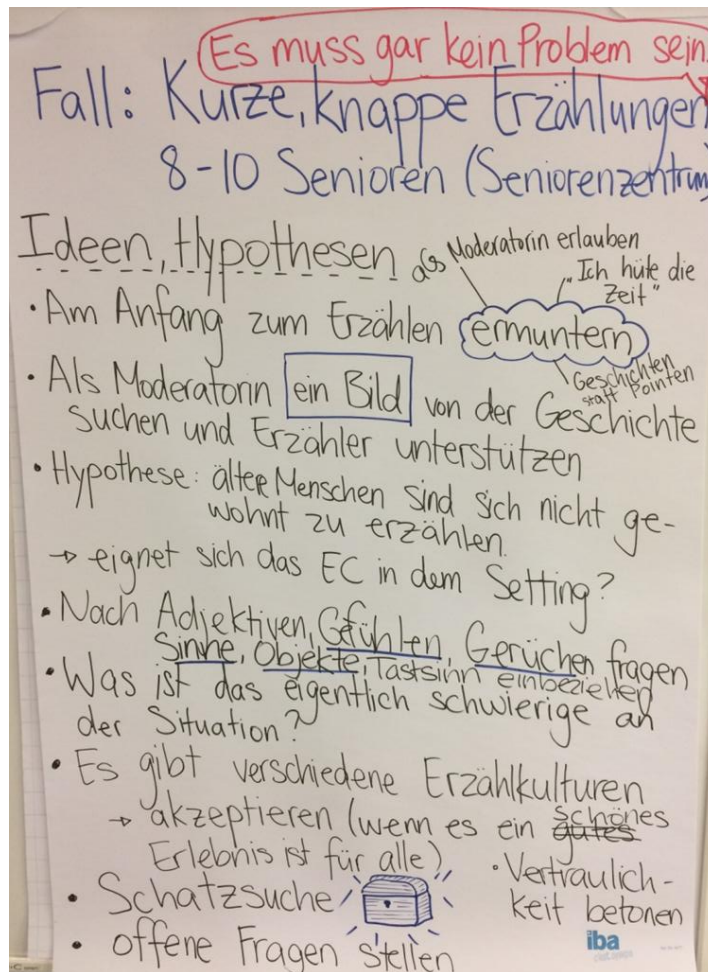 Es muss gar kein Problem sein.
Fall: Kurze, knappe Erzählungen
8-10 Senioren (Seniorenzentrum)
Ideen, Hypothesen
als Moderatorin erlauben
"Ich hüte die
Zeit"
• Am Anfang zum Erzählen ermuntern
Geschichten
statt Pointen
• Als Moderatorin ein Bild von der Geschichte
suchen und Erzähler unterstützen
• Hypothese: ältere Menschen sind sich nicht ge-
wohnt zu erzählen.
→ eignet sich das EC in dem Setting?
• Nach Adjektiven, Gefühlen, Gerüchen fragen
Sinne, Objekte, Tastsinn einbeziehen
• Was ist das eigentlich schwierige an
der Situation?
• Es gibt verschiedene Erzählkulturen
→ akzeptieren (wenn es ein gutes schönes
Erlebnis ist für alle)
• Schatzsuche
• Vertraulich-
keit betonen
• offene Fragen stellen
iba